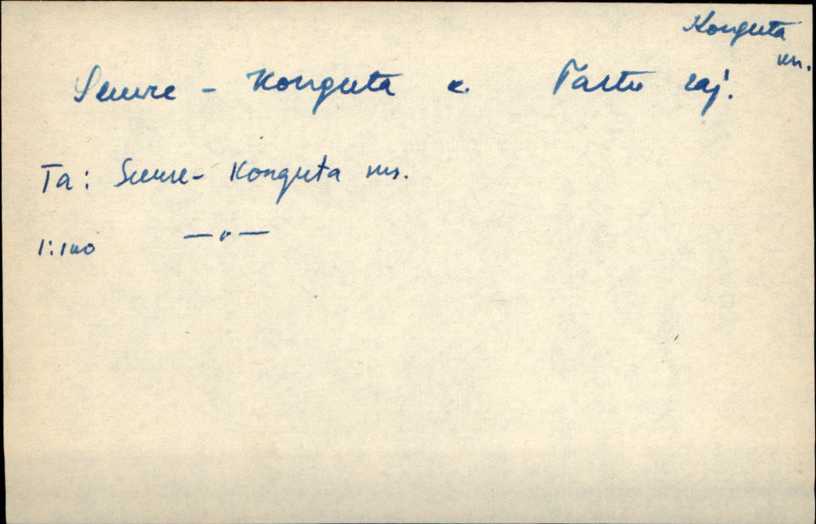 Konguta
mn.
Suure - Konguta k. Tartu raj.
Ta: Suure-Konguta ms.
1:100 —"—